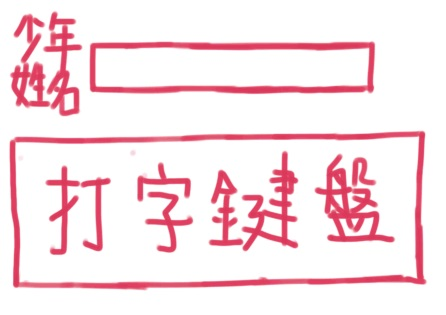 少年
姓名
打字鍵盤